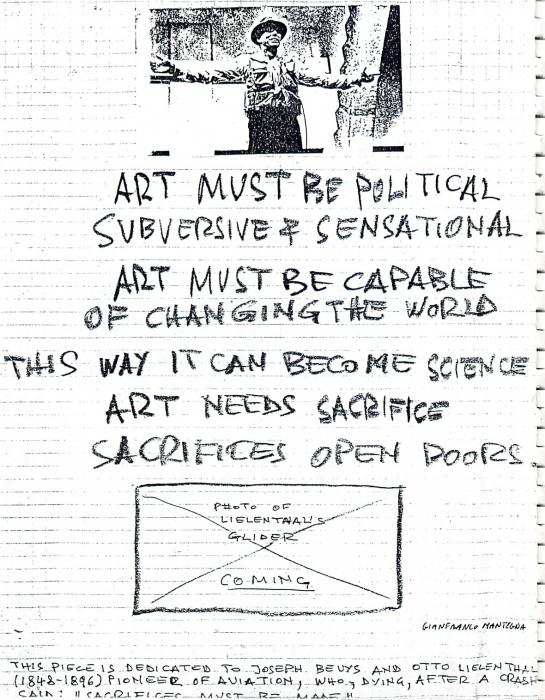 ART MUST BE POLITICAL
SUBVERSIVE & SENSATIONAL
ART MUST BE CAPABLE
OF CHANGING THE WORLD
THIS WAY IT CAN BECOME SCIENCE
ART NEEDS SACRIFICE
SACRIFICES OPEN DOORS.
PHOTO OF
LIELENTHAL'S
GLIDER
COMING
GIANFRANCO MANTEGNA
THIS PIECE IS DEDICATED TO JOSEPH BEUYS AND OTTO LIELENTHAL
(1848-1896) PIONEER OF AVIATION, WHO, DYING, AFTER A CRASH
SAID: "SACRIFICES MUST BE MADE"